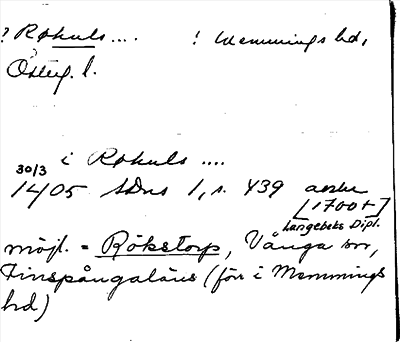 ? Rokuls.... ! Memmings hd,
Österg. l.
i Rokuls ....
30/3
1405 SDns 1, s. 439 avskr
[1700t]
Langebeks Dipl.
möjl. = Rökstorp, Vånga sn,
Finspångaläns (förr i Memmings
hd)